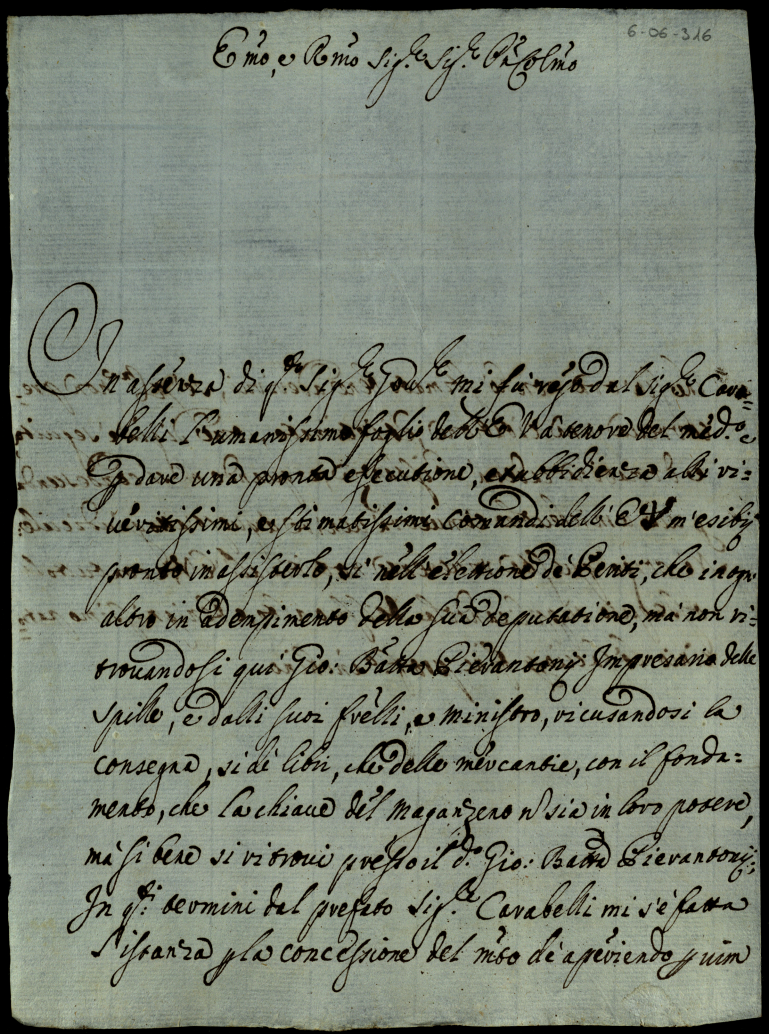 6-06-316
Emo, e Rmo Sig.re Sig.re Pne Colmo
In assenza di q.sto Sig.re Gou.re mi fù reso dal Sig.re Cara=
belli l'umanissimo foglio dell'E V à tenore del med.o e
p dare una pronta esecutione, et obbidienza alli ri=
ueritissimi, e stimatissimi comandi dell'E V m'esibij
pronto in assisterlo, si nell'elettione de Periti, che in ogn'
altro in adempimento della sua deputatione, mà non ri=
trouandosi qui Gio: Batta Pierantonij Impresario delle
spille, e dalli suoi frelli, e ministro, ricusandosi la
consegna, si de libri, che delle mercantie, con il fonda=
mento, che la chiaue del maganzeno n sia in loro potere,
mà si bene si ritroui presso il d.o Gio: Batta Pierantonij;
In q.sti termini dal prefato Sig.re Carabelli mi s'è fatta
l'istanza p la concessione del mto de aperiendo p uim